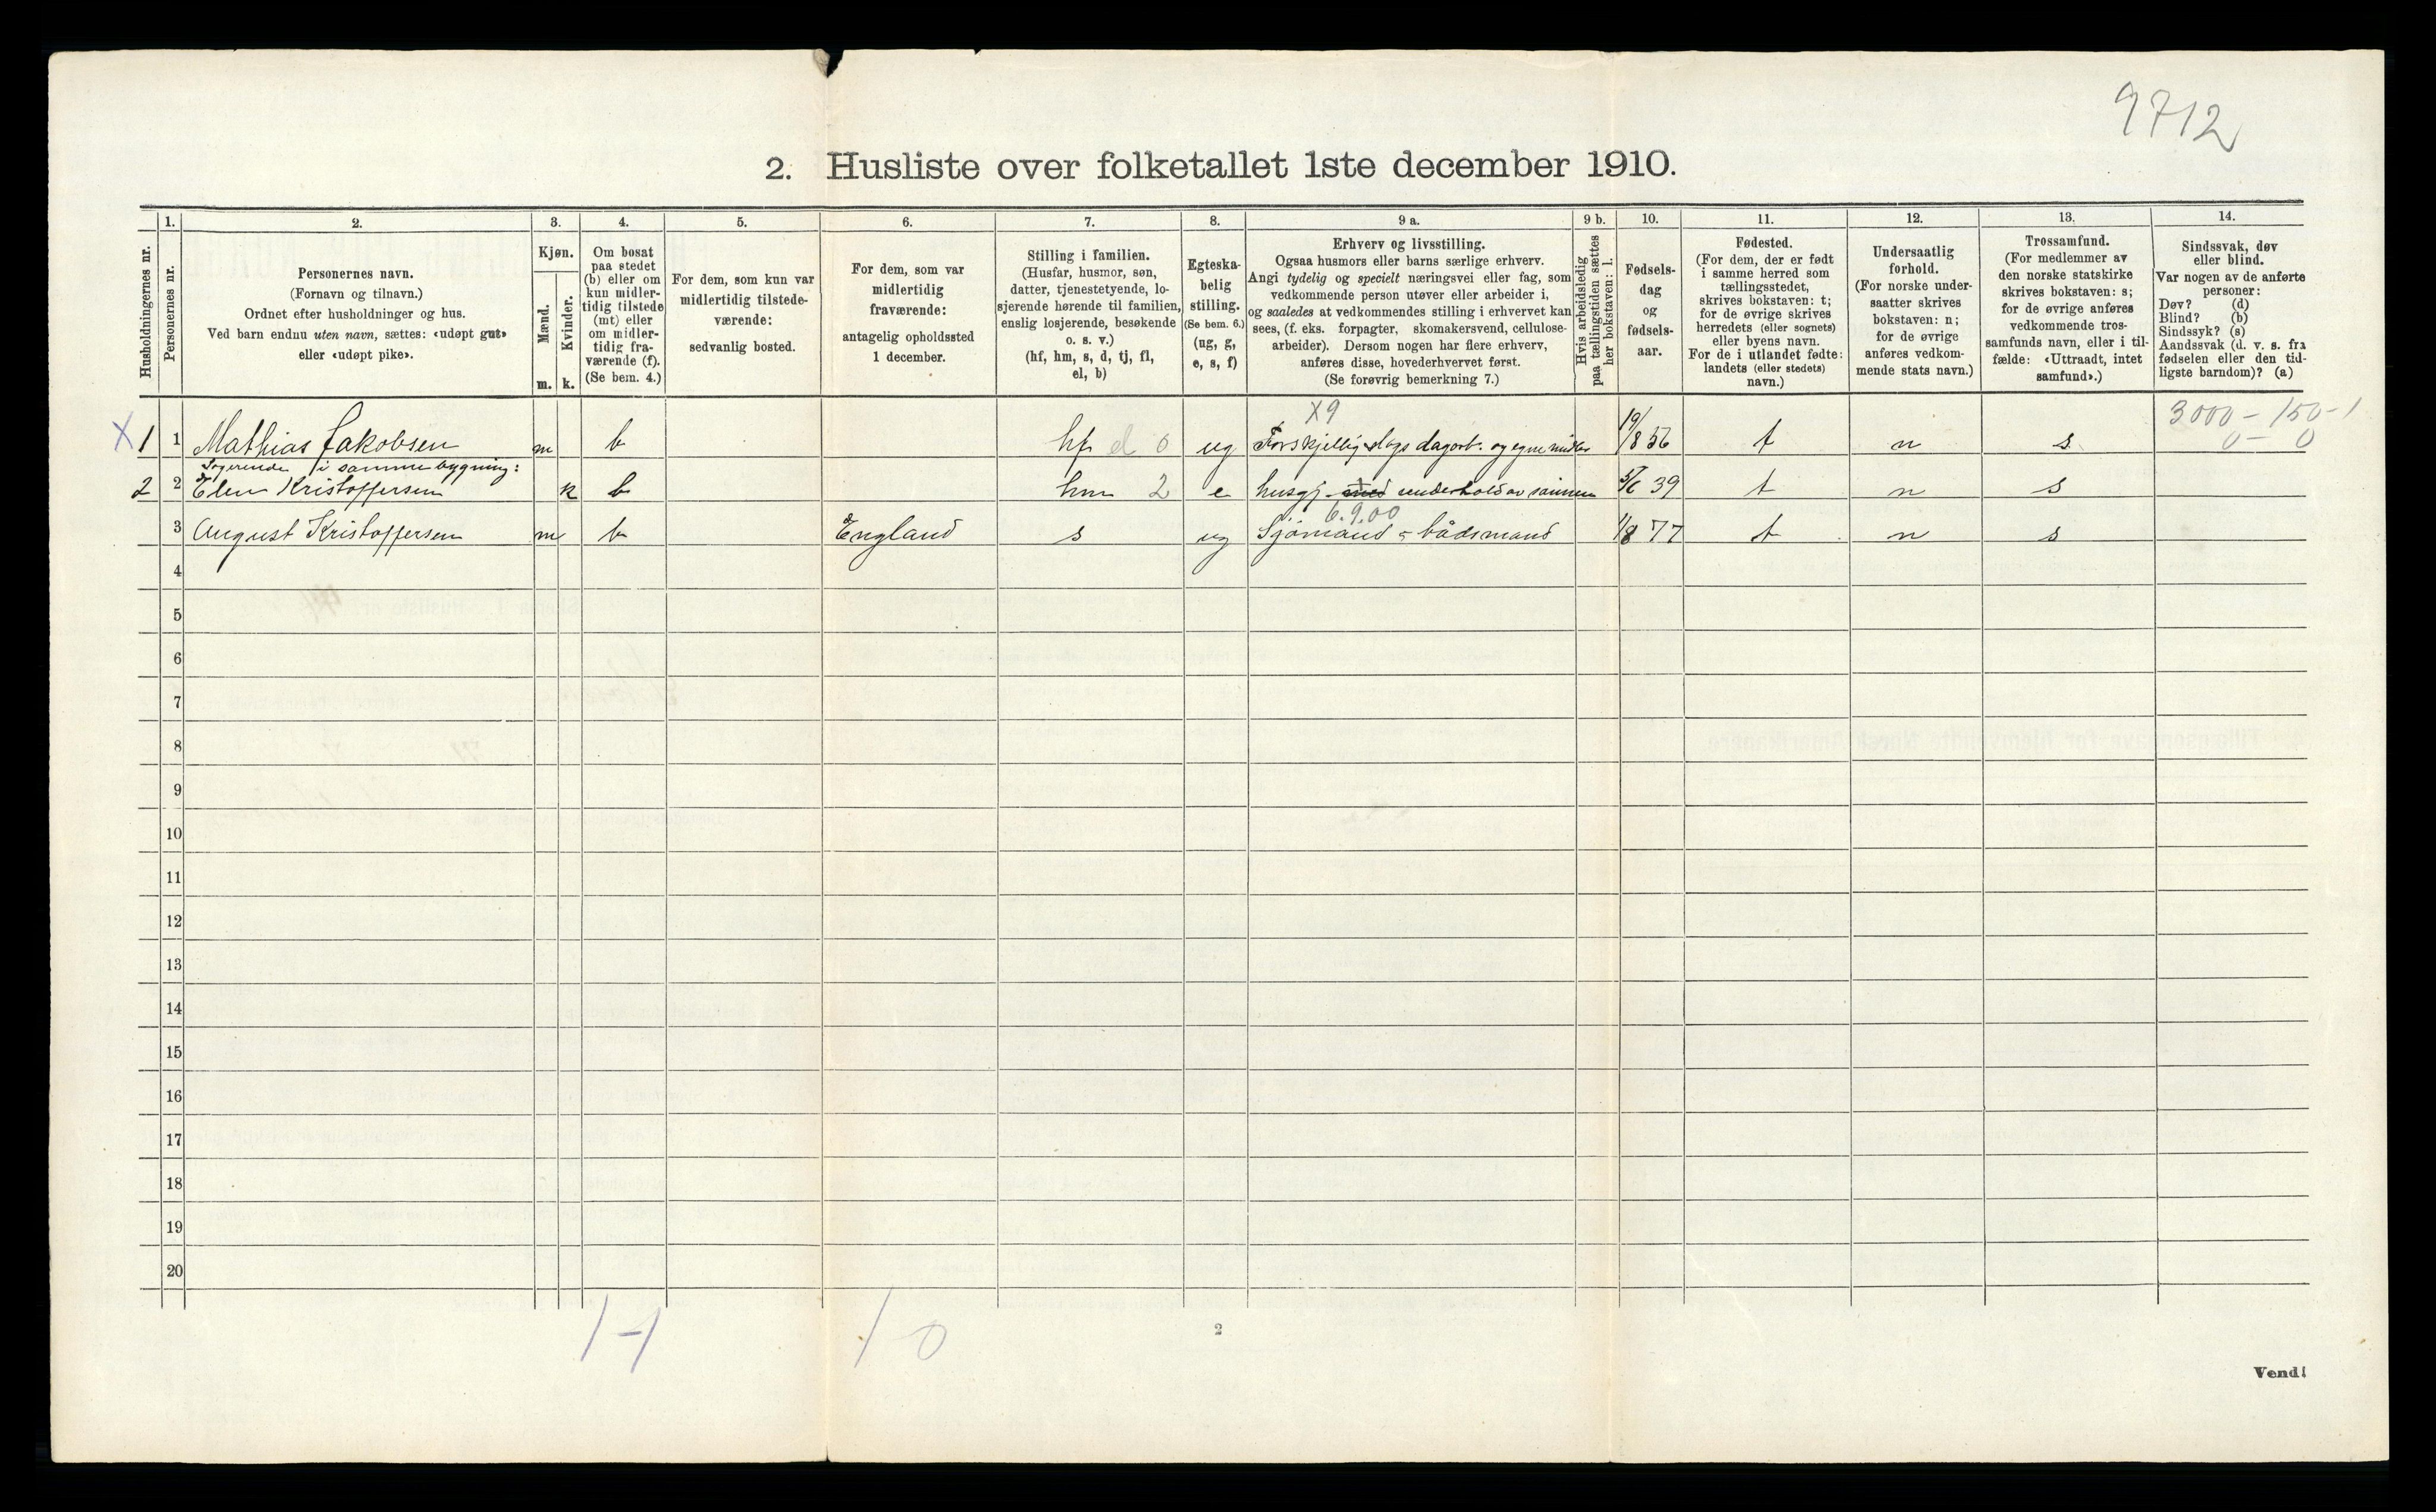 9712
2. Husliste over folketallet 1ste december 1910.
Husholdningernes nr.
1.
Personernes nr.
2.
Personernes navn.
(Fornavn og tilnavn.)
Ordnet efter husholdninger og hus.
Ved barn endnu uten navn, sættes: «udøpt gut»
eller «udøpt pike».
3.
Kjøn.
Mænd.
Kvinder.
m. k.
4.
Om bosat
paa stedet
(b) eller om
kun midler-
tidig tilstede
(mt) eller
om midler-
tidig fra-
værende (f).
(Se bem. 4.)
5.
For dem, som kun var
midlertidig tilstede-
værende:
sedvanlig bosted.
6.
For dem, som var
midlertidig
fraværende:
antagelig opholdssted
1 december.
7.
Stilling i familien.
(Husfar, husmor, søn,
datter, tjenestetyende, lo-
sjerende hørende til familien,
enslig losjerende, besøkende
o. s. v.)
(hf, hm, s, d, tj, fl,
el, b)
8.
Egteska-
belig
stilling.
(Se bem. 6.)
(ug, g,
e, s, f)
9 a.
Erhverv og livsstilling.
Ogsaa husmors eller barns særlige erhverv.
Angi tydelig og specielt næringsvei eller fag, som
vedkommende person utøver eller arbeider i,
og saaledes at vedkommendes stilling i erhvervet kan
sees, (f. eks. forpagter, skomakersvend, cellulose-
arbeider). Dersom nogen har flere erhverv,
anføres disse, hovederhvervet først.
(Se forøvrig bemerkning 7.)
9 b.
Hvis arbeidsledig
paa tællingstiden sættes
her bokstaven: l.
10.
Fødsels-
dag
og
fødsels-
aar.
11.
Fødested.
(For dem, der er født
i samme herred som
tællingsstedet,
skrives bokstaven: t;
for de øvrige skrives
herredets (eller sognets)
eller byens navn.
For de i utlandet fødte:
landets (eller stedets)
navn.)
12.
Undersaatlig
forhold.
(For norske under-
saatter skrives
bokstaven: n;
for de øvrige
anføres vedkom-
mende stats navn.)
13.
Trossamfund.
(For medlemmer av
den norske statskirke
skrives bokstaven: s;
for de øvrige anføres
vedkommende tros-
samfunds navn, eller i til-
fælde: «Uttraadt, intet
samfund».)
14.
Sindssvak, døv
eller blind.
Var nogen av de anførte
personer:
Døv? (d)
Blind? (b)
Sindssyk? (s)
Aandssvak (d. v. s. fra
fødselen eller den tid-
ligste barndom)? (a)
X9 3000 - 150-1
X 1 1 Mathias Jakobsen m b hf el 0 ug Forskjellig slags dagarb. og egne midler 19/8 56 t n s 0 - 0
Logerende i samme bygning:
2 2 Elen Kristoffersen k b hm 2 e husgj. med underhold av sønnen 5/6 39 t n s
6.9.00
3 August Kristoffersen m b England s ug Sjømand - bådsmand 1/8 77 t n s
4
5
6
7
8
9
10
11
12
13
14
15
16
17
18
19
20
1-1 1 0
2
Vend!